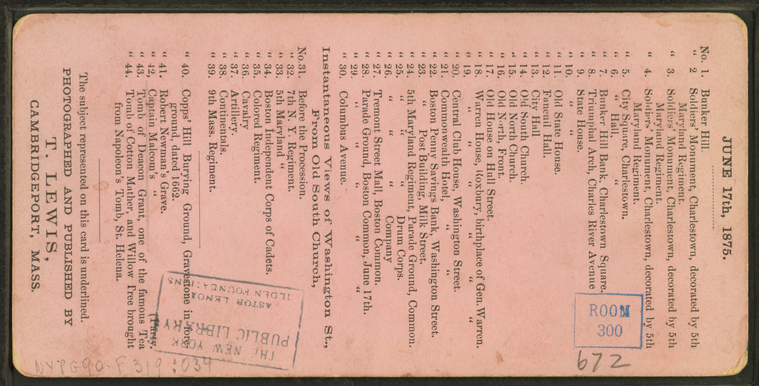 JUNE 17th, 1875.
No. 1. Bunker Hill.
" 2 Soldiers' Monument, Charlestown, decorated by 5th
Maryland Regiment.
" 3. Soldiers' Monument, Charlestown, decorated by 5th
Maryland Regiment.
" 4. Soldiers' Monument, Charlestown, decorated by 5th
Maryland Regiment.
" 5. City Square, Charlestown.
" 6. " Hall, "
" 7. Bunker Hill Bank, Charlestown Square.
" 8. Triumphal Arch, Charles River Avenue
" 9. State House.
" 10. " "
" 11. Old State House.
" 12. Faneuil Hall.
" 13. City Hall
" 14. Old South Church.
" 15. Old North Church.
" 16. Old North, Front.
" 17. Old House on Salem Street.
" 18. Warren House, Roxbury, birthplace of Gen. Warren.
" 19. " " " " " "
" 20. Central Club House, Washington Street.
" 21. Commonwealth Hotel, " "
" 22. Boston Penny Savings Bank, Washington Street.
" 23. " Post Building, Milk Street.
" 24. 5th Maryland Regiment, Parade Ground, Common.
" 25. " " " Drum Corps.
" 26. " " " Company
" 27. Tremont Street Mall, Boston Common.
" 28. Parade Ground, Boston Common, June 17th.
" 29. " " " " "
" 30. Columbus Avenue.
Instantaneous Views of Washington St.,
From Old South Church,
No. 31. Before the Procession.
" 32. 7th N. Y. Regiment.
" 33. 5th Maryland "
" 34. Boston Independent Corps of Cadets.
" 35. Colored Regiment.
" 36. Cavalry
" 37. Artillery.
" 38. Continentals.
" 39. 9th Mass. Regiment.
" 40. Copps' Hill Burying Ground, Gravestone in fore-
ground, dated 1662.
" 41. Robert Newman's Grave.
" 42. Captain Malcom's "
" 43. Tomb of Deacon Grant, one of the famous Tea
Party.
" 44. Tomb of Cotton Mather, and Willow Tree brought
from Napoleon's Tomb, St. Helena.
The subject represented on this card is underlined.
PHOTOGRAPHED AND PUBLISHED BY
T. LEWIS,
CAMBRIDGEPORT, MASS.
ROOM
300
672
THE NEW YORK
PUBLIC LIBRARY
ASTOR LENOX AND
TILDEN FOUNDATIONS
NYPG90-F319:034